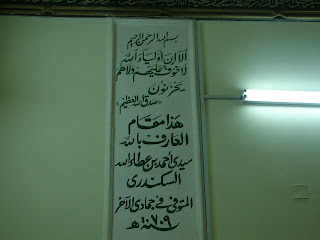 بسم الله الرحمن الرحيم
ألا إن أولياء الله
لا خوف عليهم ولا هم
يحزنون
«صدق الله العظيم»
هذا مقام
العارف بالله
سيدي أحمد بن عطاء الله
السكندري
المتوفى في جمادى الآخر
سنة ٧٠٩ هـ